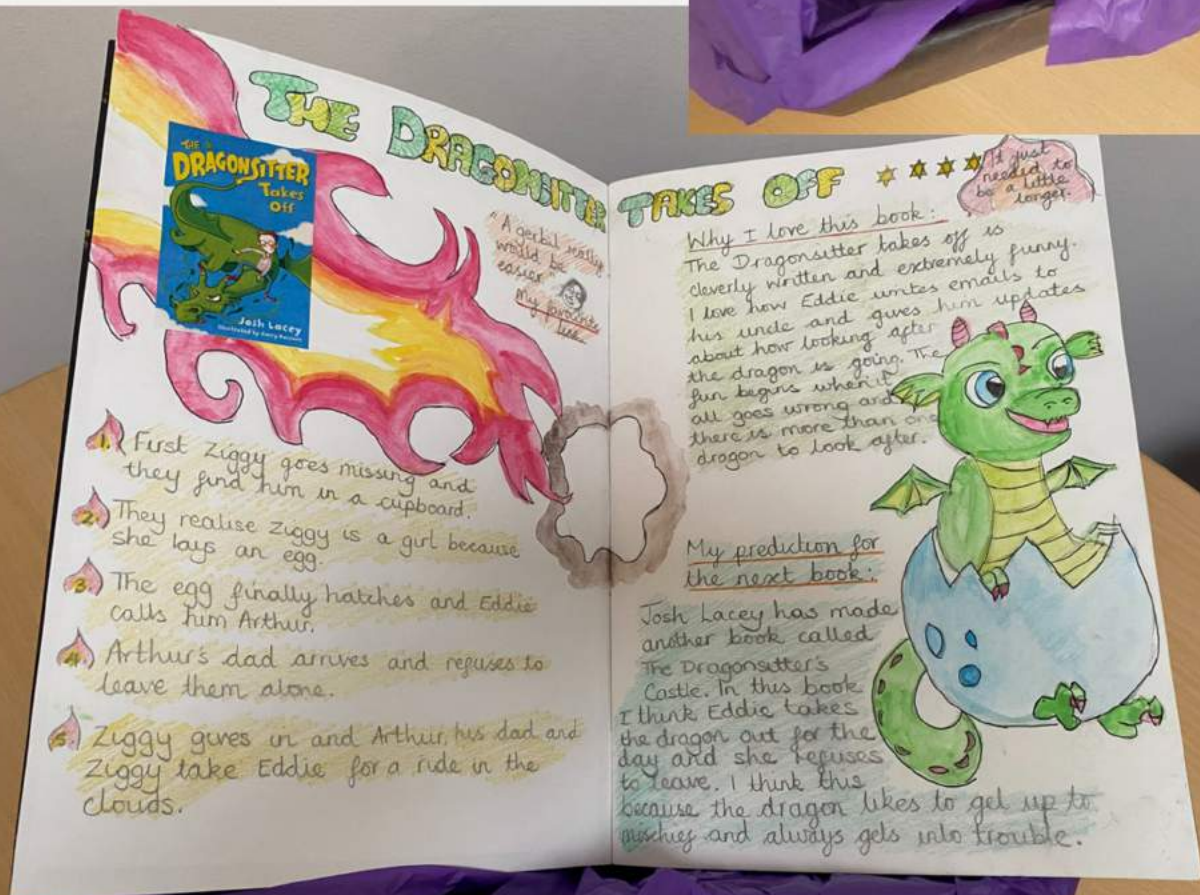 THE DRAGONSITTER
THE
DRAGONSITTER
Takes
Off
Josh Lacey
Illustrated by Garry Parsons
"A gerbil really
would be
easier."
My favourite
line.
1. First Ziggy goes missing and
they find him in a cupboard.
2. They realise Ziggy is a girl because
she lays an egg.
3 The egg finally hatches and Eddie
calls him Arthur.
4. Arthur's dad arrives and refuses to
leave them alone.
5. Ziggy gives in and Arthur, his dad and
Ziggy take Eddie for a ride in the
clouds.
TAKES OFF
It just
needed to
be a little
longer.
Why I love this book:
The Dragonsitter takes off is
cleverly written and extremely funny.
I love how Eddie writes emails to
his uncle and gives him updates
about how looking after
the dragon is going. The
fun begins when it
all goes wrong and
there is more than one
dragon to look after.
My prediction for
the next book:
Josh Lacey has made
another book called
The Dragonsitter's
Castle. In this book
I think Eddie takes
the dragon out for the
day and she refuses
to leave. I think this
because the dragon likes to get up to
mischief and always gets into trouble.